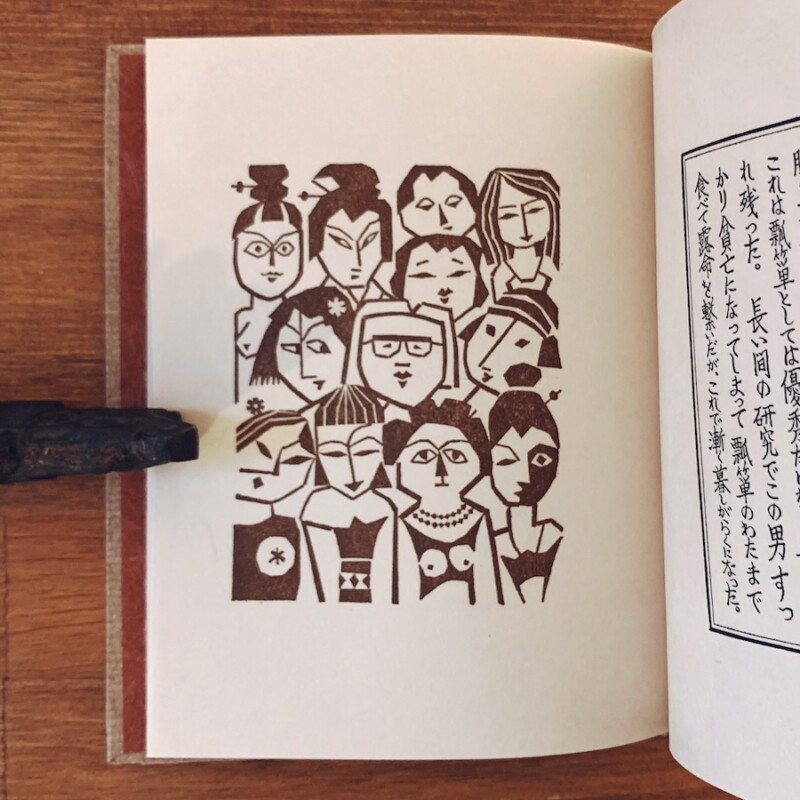 これは瓢箪としては優秀だ
れ残った。 長い間の研究でこの男すっ
かり貧亡になってしまって瓢箪のわたまで
食べて露命を繋いだが、これで漸く暮しがらくになった。